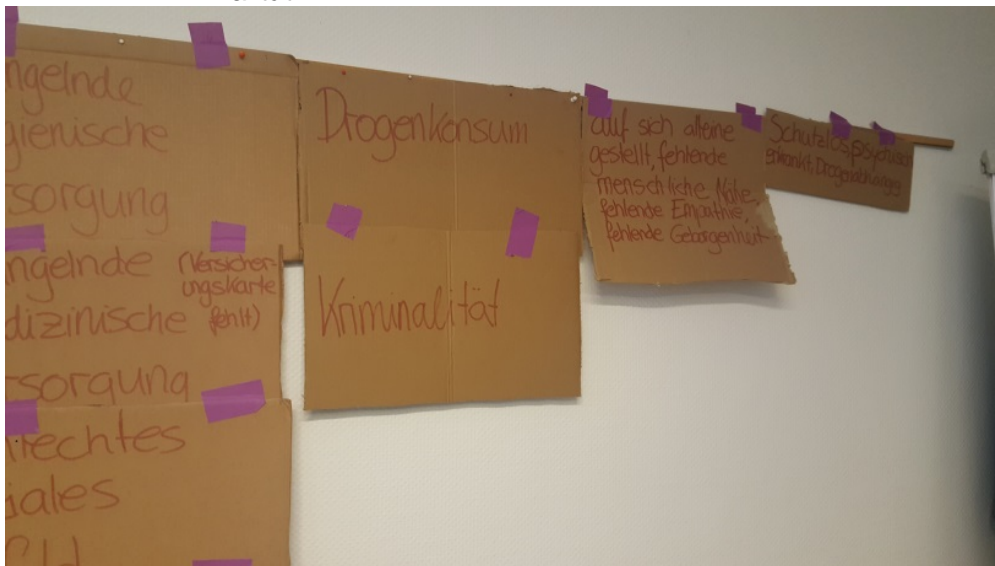 ngelnde
gienische
sorgung
ngelnde (Versicher-
ungskarte
dizinische fehlt)
sorgung
lechtes
iales
Drogenkonsum
Kriminalität
auf sich alleine
gestellt, fehlende
menschliche Nähe,
fehlende Empathie,
fehlende Geborgenheit
Schutzlos, psychisch
erkrankt,